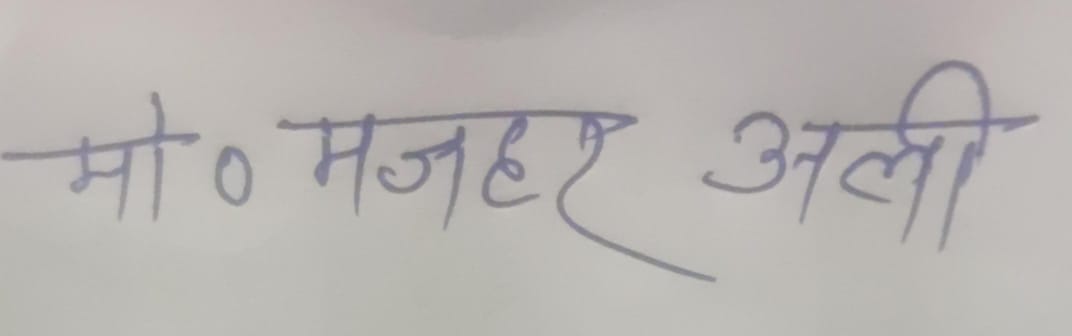 मो० मजहर अली